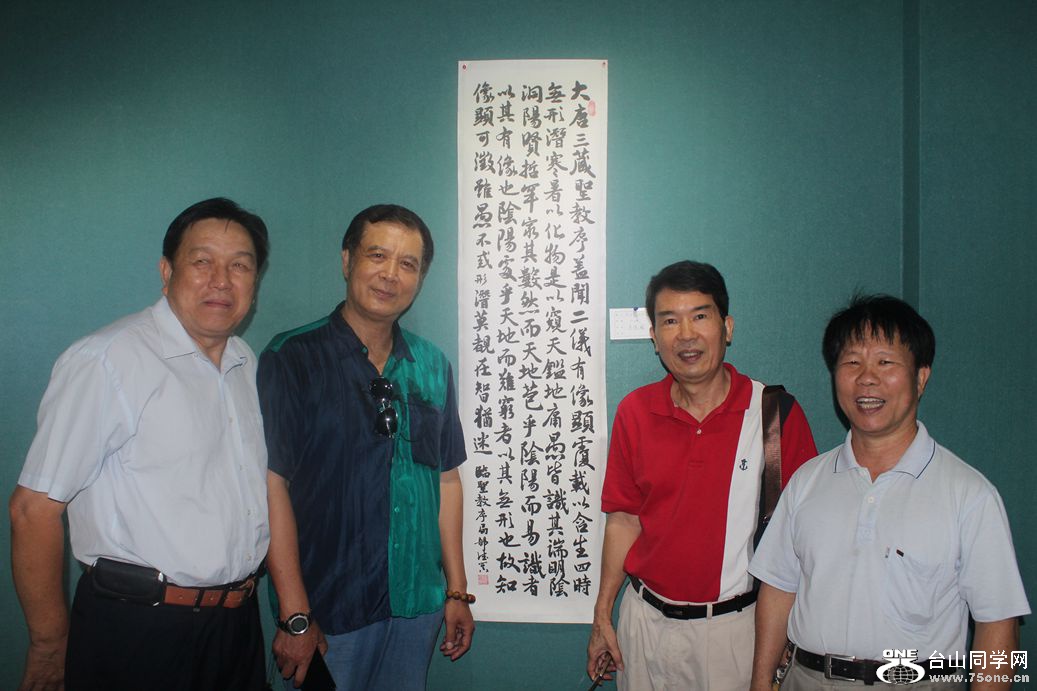 大唐三藏聖教序盖聞二儀有像顯覆載以含生四時
無形潛寒暑以化物是以窺天鑑地庸愚皆識其端明陰
洞陽賢哲罕窮其數然而天地苞乎陰陽而易識者
以其有像也陰陽處乎天地而難窮者以其無形也故知
像顯可徵雖愚不或形潛莫覩在智猶迷
臨聖教序局部
ONE 台山同学网
www.75one.cn